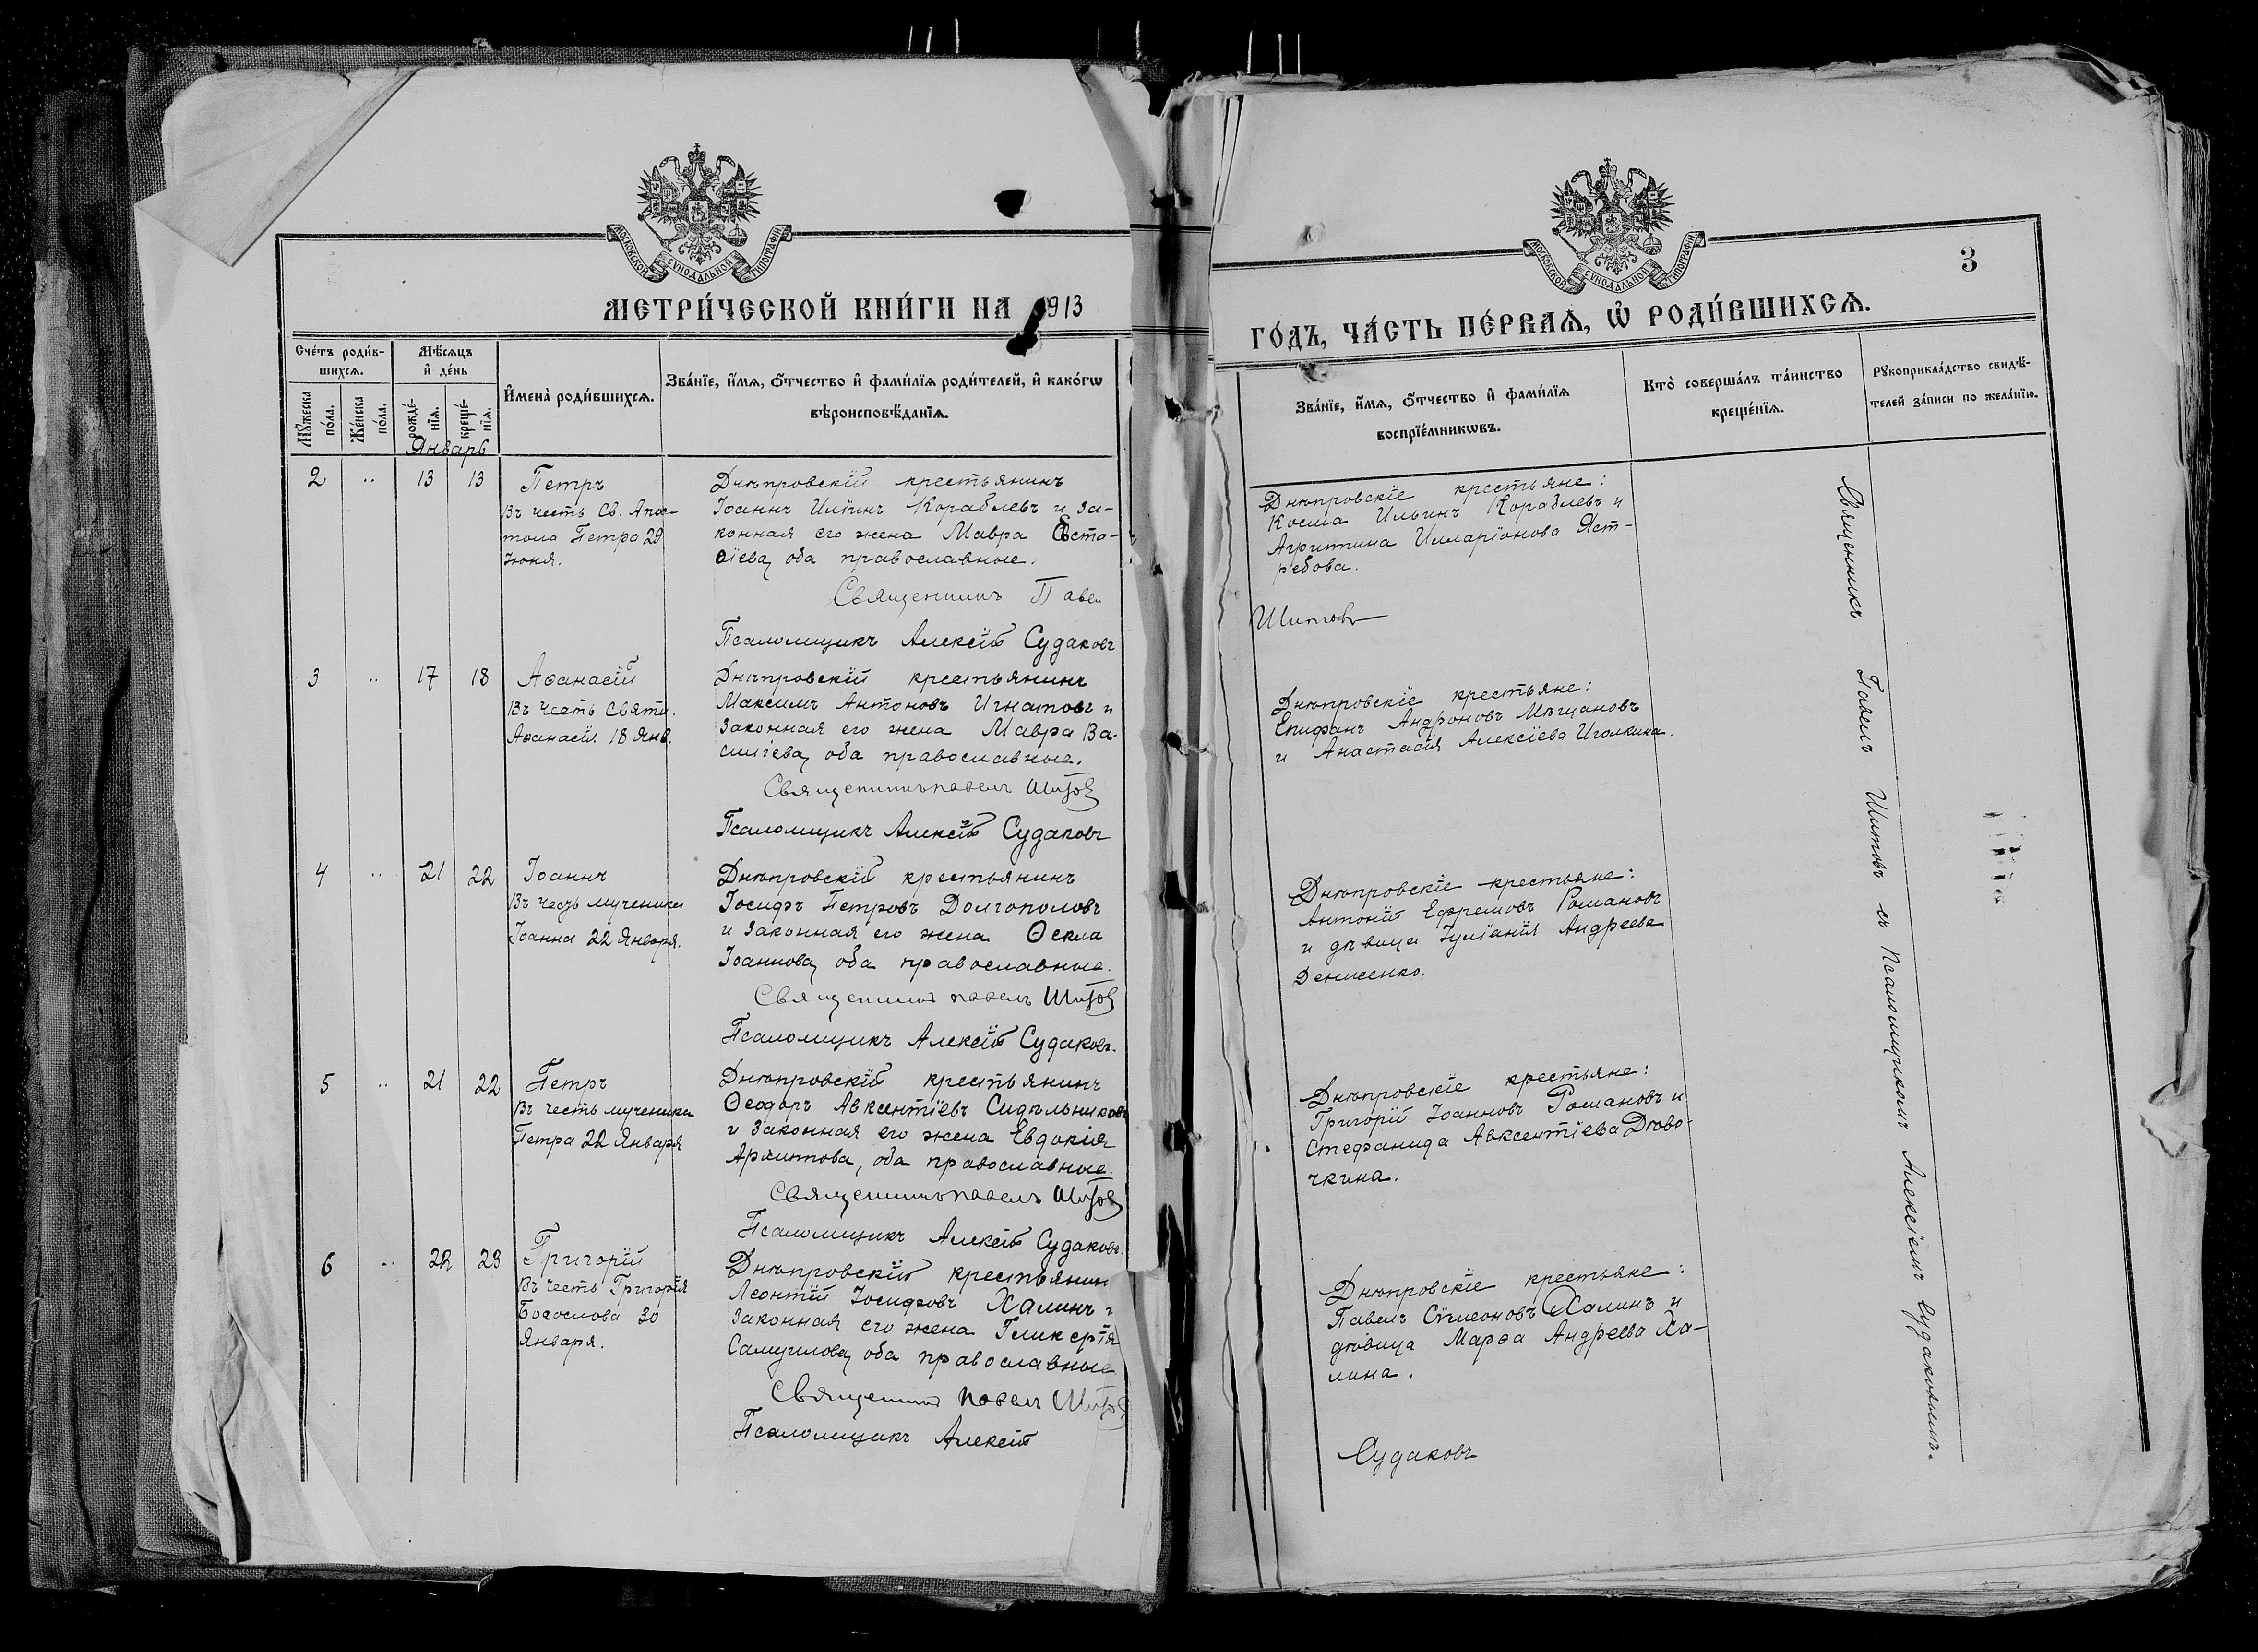 МОСКОВСКОЙ СУНОДАЛЬНОЙ ТИПОГРАФІИ
МЕТРИ́ЧЕСКОЙ КНИ́ГИ НА 1913
Сче́тъ роди́в-
шихсѧ.
Мѣ́сяцъ
и҆ де́нь
Мꙋ́жеска по́ла.
Же́нска по́ла.
рожде́-
нїѧ.
креще́-
нїѧ.
И҆мена̀ роди́вшихсѧ.
Зва́нїе, и҆́мѧ, ѻ҆́тчество и҆ фами́лїѧ роди́телей, и҆ како́гѡ
вѣроисповѣ́данїѧ.
Январь
2 .. 13 13
Петръ
Въ честь Св. Апос-
тола Петра 29
Іюня.
Днѣпровскій крестьянинъ
Іоаннъ Ильинъ Кораблевъ и за-
конная его жена Мавра Евста-
ѳіева, оба православные.
Священникъ Павел
Псаломщикъ Алексій Судаковъ
3 .. 17 18
Аѳанасій
Въ честь Святи.
Аѳанасія 18 Янв.
Днѣпровскій крестьянинъ
Максимъ Антоновъ Игнатовъ и
законная его жена Мавра Ва-
силіева, оба православные.
Священникъ Павелъ Шитов
Псаломщикъ Алексій Судаковъ
4 .. 21 22
Іоаннъ
Въ честь мученика
Іоанна 22 Января.
Днѣпровскій крестьянинъ
Іосифъ Петровъ Долгополовъ
и законная его жена Ѳекла
Іоаннова, оба православные.
Священникъ Павелъ Шитов
Псаломщикъ Алексій Судаковъ.
5 .. 21 22
Петръ
Въ честь мученика
Петра 22 Января
Днѣпровскій крестьянинъ
Ѳеодоръ Авксентіевъ Сидѣльниковъ
и законная его жена Евдокія
оба православные.
Священникъ Павелъ Шитов
Псаломщикъ Алексій Судаковъ.
6 .. 22 23
Григорій
Въ честь Григорія
Богослова 30
Января.
Днѣпровскій крестьянин
Леонтій Іосифовъ Халинъ и
законная его жена Гликерія
Самуилова, оба православные
Священникъ Павелъ Шитов
Псаломщикъ Алексій
МОСКОВСКОЙ СУНОДАЛЬНОЙ ТИПОГРАФІИ
3
ГО́ДЪ, ЧА́СТЬ ПЕ́РВАѦ, Ѡ҆ РОДИ́ВШИХСѦ.
Зва́нїе, и҆́мѧ, ѻ҆́тчество и҆ фами́лїѧ
воспрїе́мникѡвъ.
Кто̀ соверша́лъ та́инство
креще́нїѧ.
Рꙋкоприкла́дство свидѣ́-
телей за́писи по жела́нїю.
Днѣпровскіе крестьяне:
Косма Ильинъ Кораблевъ и
Агриппина Илларіонова Яст-
ребова.
Шитовъ
Днѣпровскіе крестьяне:
Епифанъ Андроновъ Мѣщановъ
и Анастасія Алексіева Иголкина.
Днѣпровскіе крестьяне:
Антоній Ефремовъ Романовъ
и дѣвица Іуліанія Андреева
Денисенко.
Днѣпровскіе крестьяне:
Григорій Іоанновъ Романовъ и
Стефанида Авксентіева Дѣво-
чкина.
Днѣпровскіе крестьяне:
Павелъ Сѷмеоновъ Халинъ и
дѣвица Марѳа Андреева Ха-
лина.
Судаковъ
Священникъ Павелъ Шитовъ съ Псаломщикомъ Алексіемъ Судаковымъ.